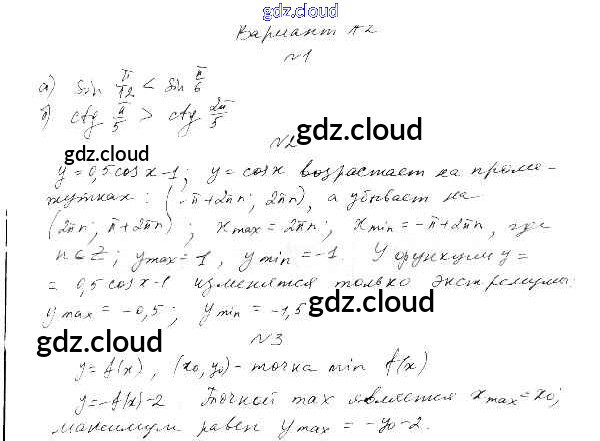 gdz.cloud
Вариант А2
№1
а) sin π/12 < sin π/6
б) ctg π/5 > ctg 2π/5
gdz.cloud
№2
gdz.cloud
y=0,5cosx-1; y=cosx возрастает на проме-
жутках: (-π+2πn; 2πn), а убывает на
(2πn; π+2πn); xmax=2πn; xmin=-π+2πn, где
n∈Z; ymax=1, ymin=-1. У функции y=
=0,5cosx-1 изменятся только экстремумы:
ymax=-0,5; ymin=-1,5
gdz.cloud
gdz.cloud
№3
y=f(x), (x0,y0)-точка min f(x)
y=-f(x)-2. Точкой max является xmax=x0;
максимум равен ymax=-y0-2.
gdz.cloud